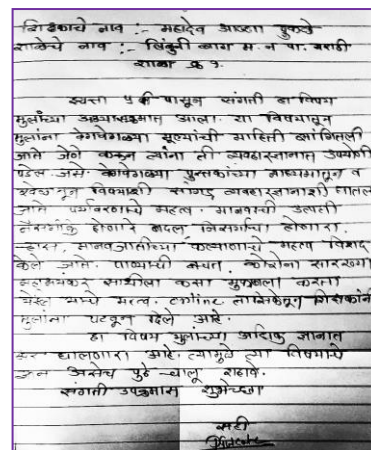 शिक्षकाचे नाव :- महादेव आप्पा
शाळेचे नाव :- लिंबुनी बाग म. न. पा. मराठी
शाळा क्र २.
इयत्ता पासून संगती हा विषय
मुलांच्या अभ्यासक्रमात आला. या विषयातून
मुलांना वेगवेगळ्या मूल्यांची माहिती सांगितली
जाते जेणे करून त्यांना ती व्यवहारज्ञानात उपयोगी
पडेल असे. वेगवेगळ्या पुस्तकांच्या माध्यमातून व
विषयाची सांगड व्यवहारज्ञानाशी घातली
जाते पर्यावरणाचे महत्व, मानवाची उत्पत्ती
होणारे बदल निसर्गाचा होणारा
ऱ्हास, मानवजातीच्या कल्याणाचे महत्व विशद
केले जाते. पाण्याची बचत, कोरोना सारख्या
साथीला कसा मुकाबला करता
येईल याचे महत्व. online तासिकेतून शिक्षकांनी
मुलांना पटवून दिले आहे.
हा विषय मुलांच्या अधिक ज्ञानात
भर घालणारा आहे. त्यामुळे त्या विषयाचे
असेच पुढे चालू राहावे.
संगती उपक्रमास शुभेच्छा
सही